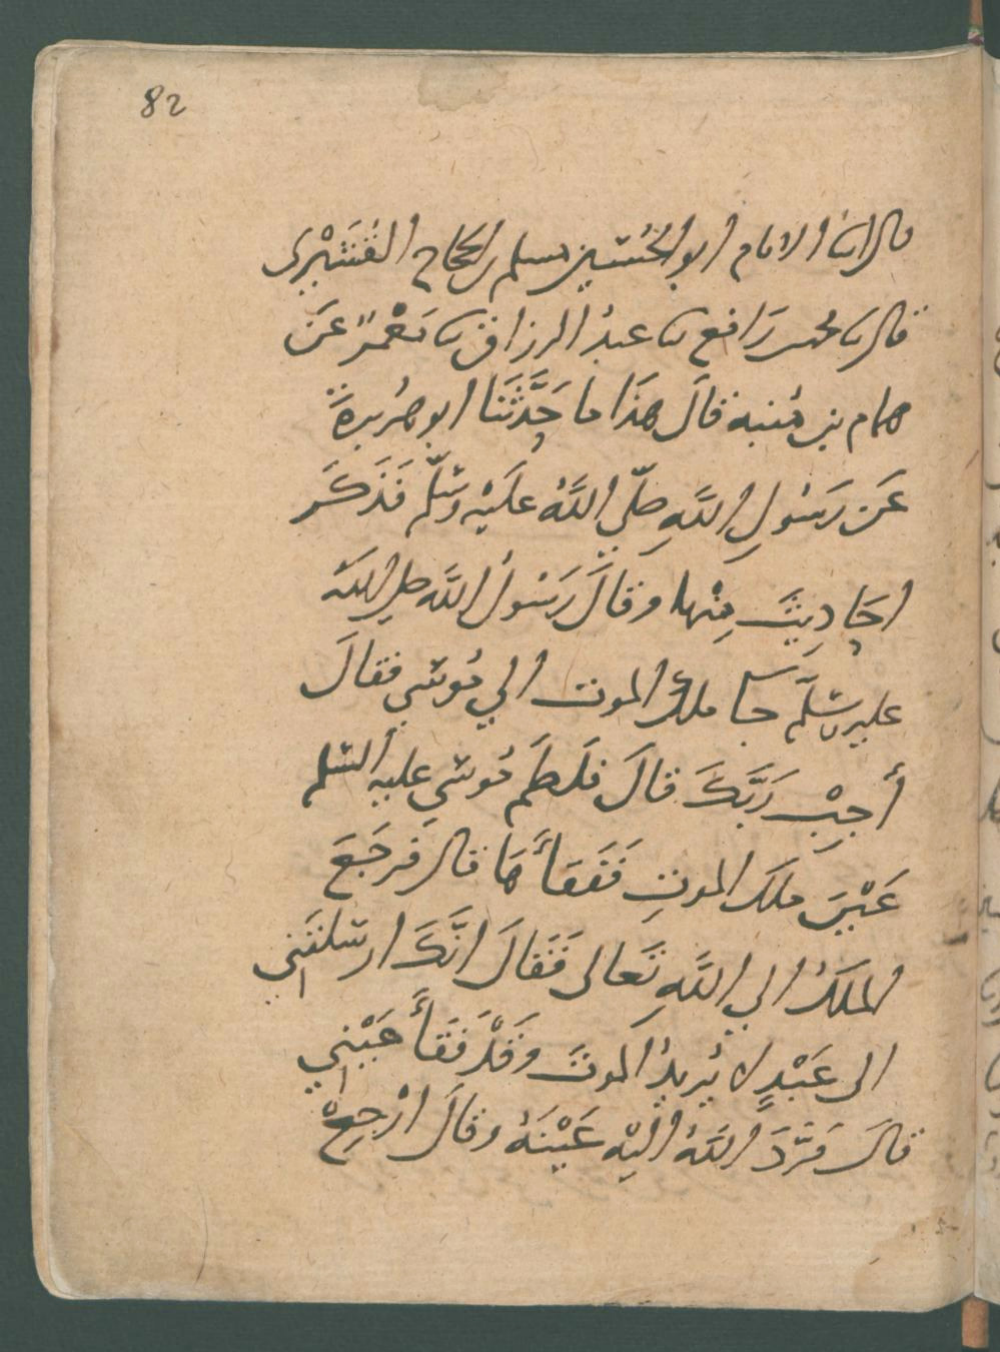 82
قال انا الامام ابو الحُسَين مسلم بن الحجاج القُشَيْرِي
قال نا محمد بن رَافع نا عبدُ الرزاق نا مَعْمرٌ عَن
همام بن مُنبه قالَ هذَا ما حَدَّثَنَا ابو هُرَيرةَ
عَن رَسُولِ اللَّهِ صلّى اللَّهُ عليْهِ وسَلّم فَذَكَر
احَاديثَ مِنْها وقالَ رَسُولُ اللَّهِ صلى اللهُ
عليه وسَلّم جآ ملكُ الموت الي مُوسَي فقالَ
أَجِبْ رَبَّكَ قالَ فلَطَم مُوسَي عليه السّلم
عَيْنَ ملَك الموتِ فَفَقأَهَا قال فرَجَعَ
الملَكُ الي اللَّهِ تَعالى فَقَالَ انَّكَ ارسَلتَني
الى عَبْدٍ لا يُريدُ الموتَ وقَدْ فَقَأَ عَيْني
قالَ فَرَّدَ اللَّهُ اليْهِ عَيْنَهُ وقالَ ارْجِعْ